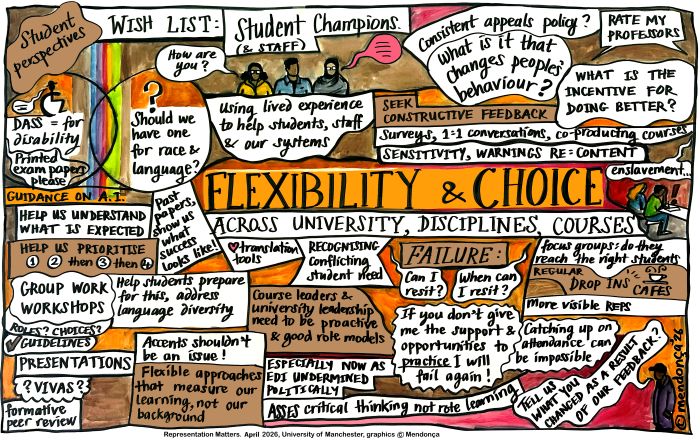 Student
perspectives
WISH LIST:
Student Champions.
(& STAFF)
How are
you?
using lived experience
to help students, staff
& our systems
Consistent appeals policy?
What is it that
changes peoples'
behaviour?
RATE MY
PROFESSORS
WHAT IS THE
INCENTIVE FOR
DOING BETTER?
DASS = for
disability
Printed
exam papers
please
?
Should we
have one
for race &
language?
SEEK
CONSTRUCTIVE FEEDBACK
Surveys, 1:1 conversations, co-producing courses
SENSITIVITY, WARNINGS RE: CONTENT
enslavement...
FLEXIBILITY & CHOICE
ACROSS UNIVERSITY, DISCIPLINES, COURSES
GUIDANCE ON A.I.
HELP US UNDERSTAND
WHAT IS EXPECTED
HELP US PRIORITISE
1 2 then 3 then 4
Past
papers,
show us
what
success
looks like!
GROUP WORK
WORKSHOPS
ROLES? CHOICES?
GUIDELINES
PRESENTATIONS
? VIVAS?
formative
peer review
Help students prepare
for this, address
language diversity
Accents shouldn't
be an issue!
Flexible approaches
that measure our
learning, not our
background
translation
tools
RECOGNISING
Conflicting
student need
Course leaders &
university leadership
need to be proactive
& good role models
ESPECIALLY NOW AS
EDI UNDERMINED
POLITICALLY
ASSESS critical thinking not rote learning
FAILURE:
Can I
resit?
When can
I resit?
If you don't give
me the support &
opportunities to
practice I will
fail again!
focus groups: do they
reach the right students
REGULAR
DROP INS
CAFES
more visible REPS
Catching up on
attendance can
be impossible
TELL US
WHAT YOU
CHANGED AS A RESULT
OF OUR FEEDBACK.
?
© mendonça 26
Representation Matters. April 2026, University of Manchester, graphics © Mendonça